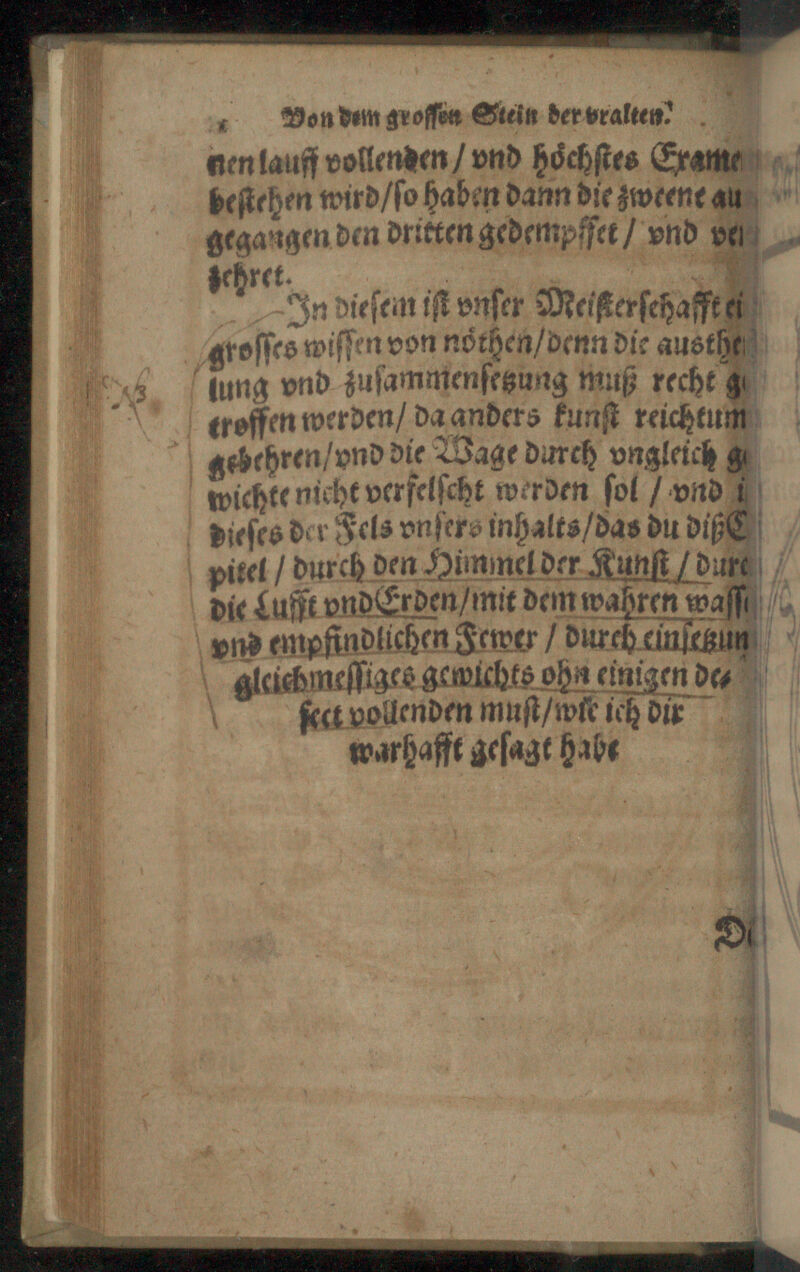 Von dem groſſen Stein der vralten.
nen lauff vollenden / vnd hoͤchſtes Exame
beſtehen wird/ſo haben dann die zweene au
gegangen den dritten gedempffet / vnd ve
zehret.
In dieſem iſt vnſer Meiſterſchafft ei
groſſes wiſſen von noͤthen/denn die austhe
lung vnd zuſammenſetzung muß recht g
troffen werden/ da anders kunſt reichtum
gebehren/vnd die Wage durch vngleich g
wichte nicht verfelſcht werden ſol / vnd i
dieſes der Fels vnſers inhalts/das du diß C
pitel / durch den Himmel der Kunſt / durc
die Lufft vnd Erden/mit dem wahren waſſe
vnd empfindlichen Fewer / durch einſetzun
gleichmeſſiges gewichts ohn einigen de⸗
fect vollenden muſt/wie ich dir
warhafft geſagt habe
D